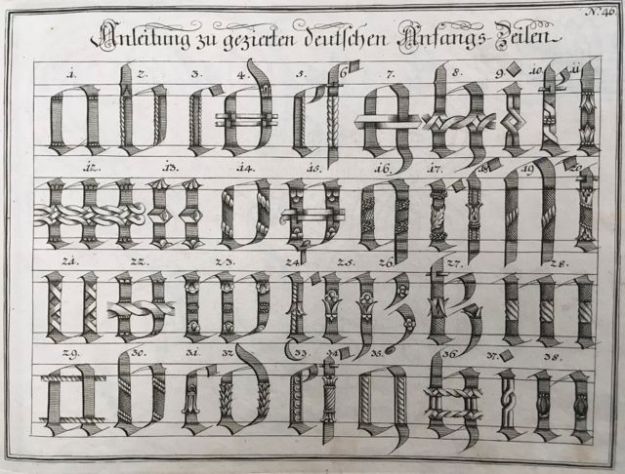 N. 46.
Anleitung zu gezierten deutschen Anfangs-Zeilen
1. 2. 3. 4. 5. 6. 7. 8. 9. 10. 11.
a b c d e f g h i
12. 13. 14. 15. 16. 17. 18. 19. 20.
m n o p q r
21. 22. 23. 24. 25. 26. 27. 28.
u v w x y z
29. 30. 31. 32. 33. 34. 35. 36. 37. 38.
a b c d e f g h i n